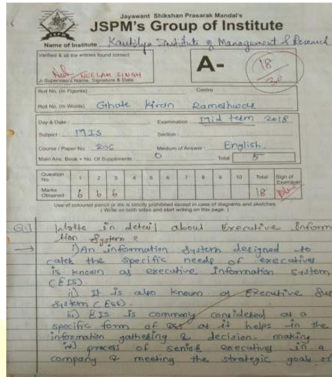 Jayawant Shikshan Prasarak Mandal's
JSPM's Group of Institute
JSPM
Name of Institute Kautilya Institute of Management & Research
Verified & all the entries found correct
NEELAM SINGH
Jr. Supervisor's Name, Signature & Date
A-
18
30
Roll No. (In Figures)
Centre
Roll No. (In Words) Ghate Kiran Rameshwar
Day & Date :
Examination : Mid term 2018
Subject : MIS
Section :
Course / Paper No 206
Medium of Answer : English
Main Ans. Book + No. Of Supplements : 0
Total 5
Question No. 1 2 3 4 5 6 7 8 9 10 Total Sign of Examiner
Marks Obtained 6 6 6 18
Use of coloured pencil or ink is strictly prohibited except in case of diagrams and sketches.
( Write on both sides and start writing on this page )
Q.1] in detail about Executive Inform
tion System ?
→ i) An information system designed to
cater the specific needs of executives
is known as executive information system
(EIS)
ii) It is also known as Executive Su
System (ESS).
iii) EIS is commony considered as a
specific form of DSS as it helps in the
information gathering & decision making
process of senior executives in a
company & meeting the strategic goals of